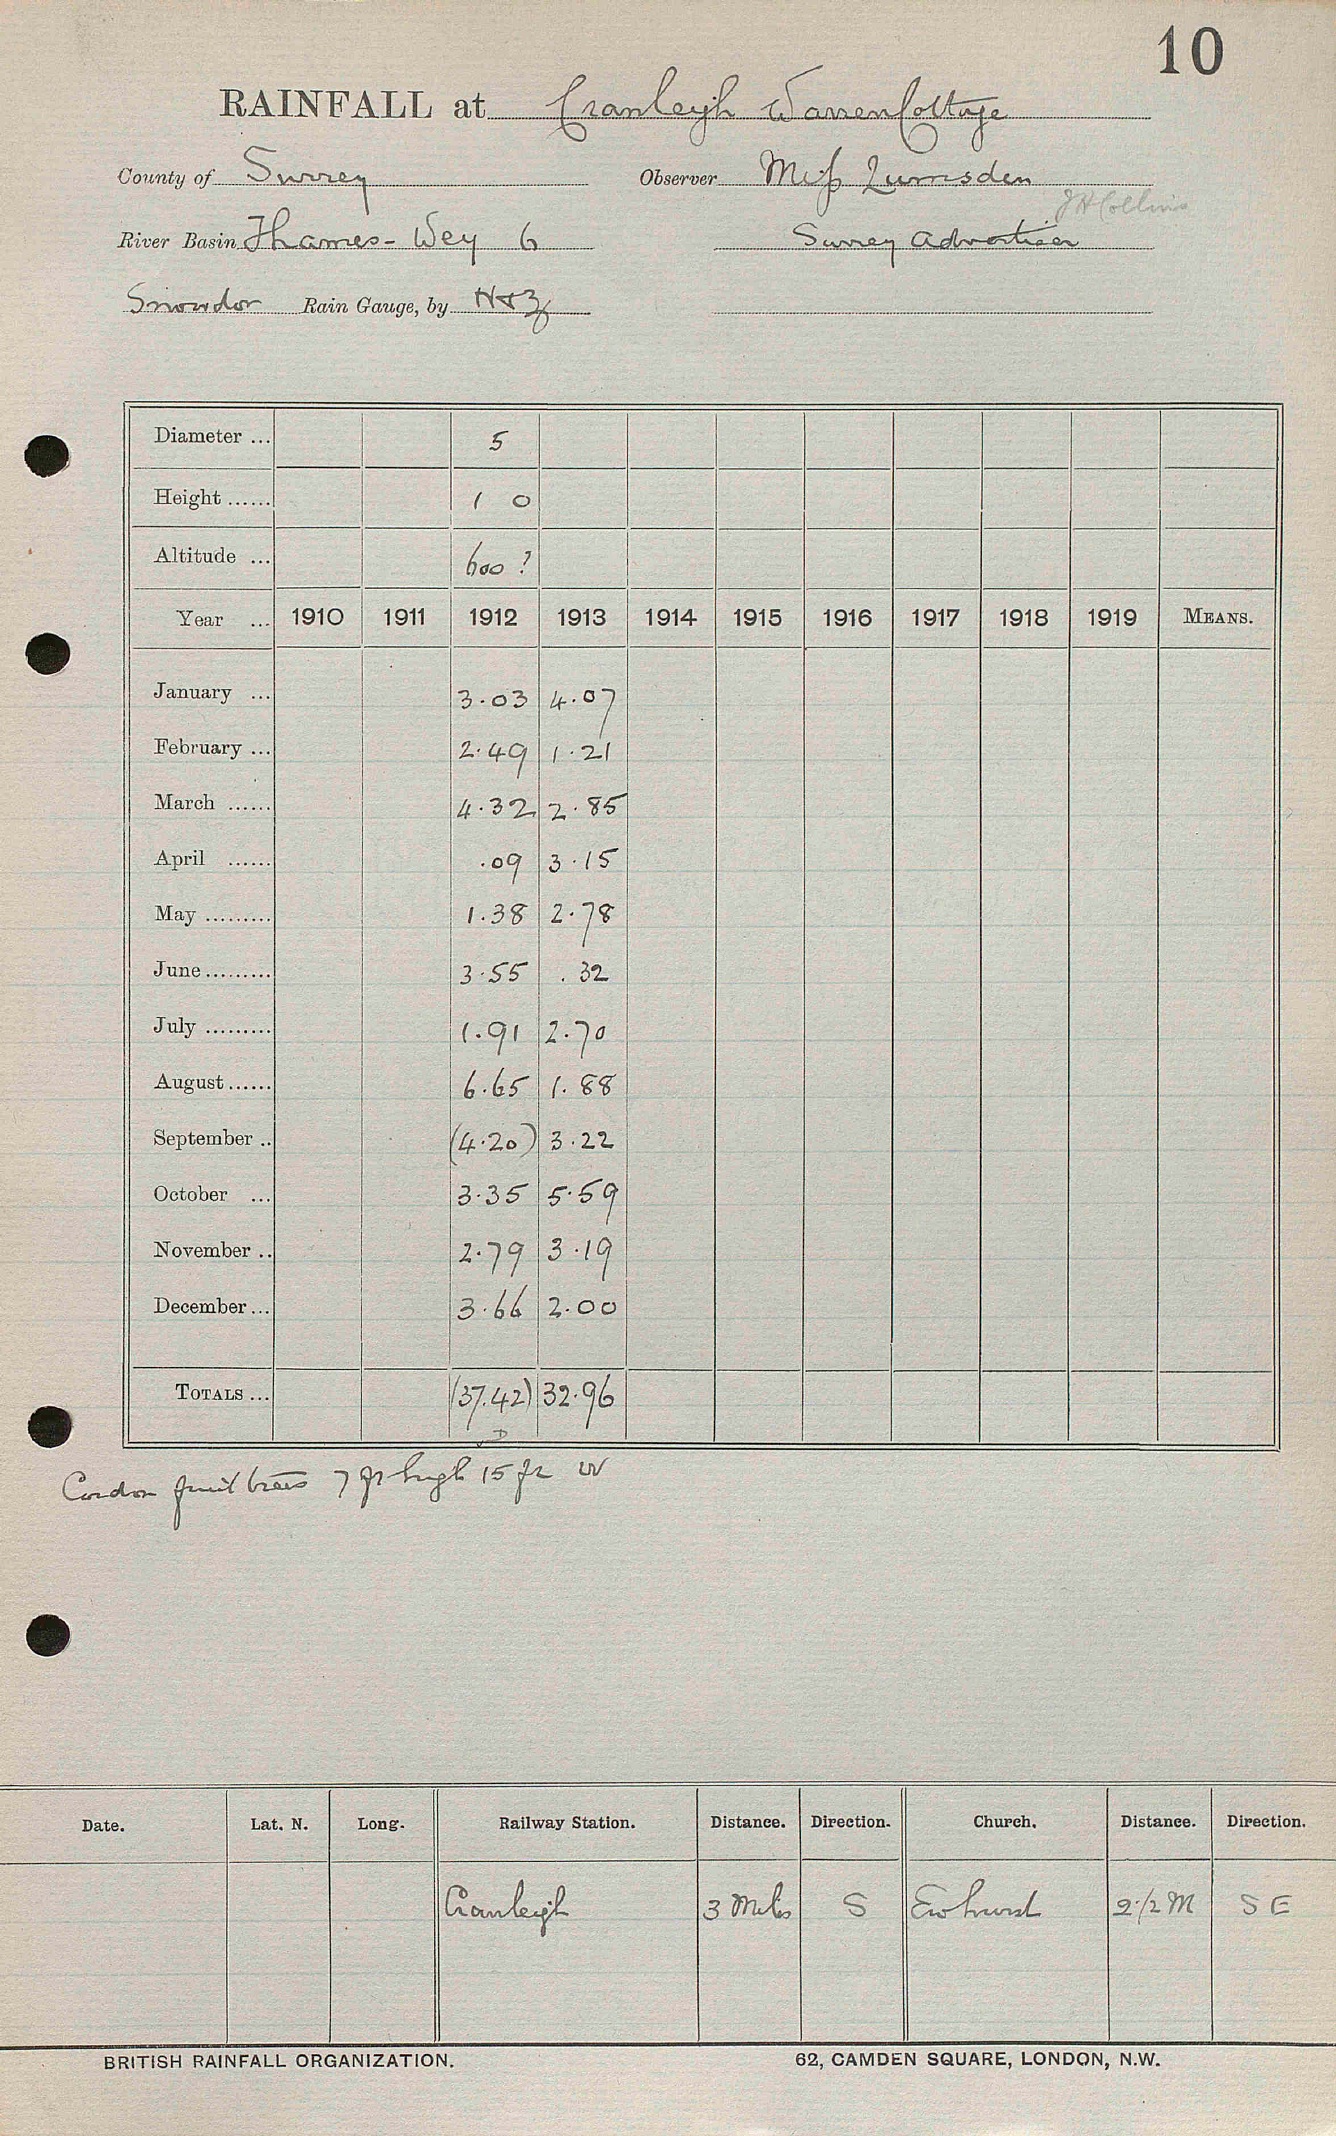 10
RAINFALL at Cranleigh Warren Cottage
County of Surrey Observer Miss Lumsden
J H Collins
River Basin Thames - Wey 6 Surrey Advertiser
Snowdon Rain Gauge, by N & Z
Diameter ... 5
Height ...... 1 0
Altitude ... 600 ?
Year ... 1910 1911 1912 1913 1914 1915 1916 1917 1918 1919 MEANS.
January ... 3.03 4.07
February ... 2.49 1.21
March ...... 4.32 2.85
April ...... .09 3.15
May ......... 1.38 2.78
June ......... 3.55 .32
July ......... 1.91 2.70
August ...... 6.65 1.88
September .. (4.20) 3.22
October ... 3.35 5.59
November .. 2.79 3.19
December ... 3.66 2.00
TOTALS ... (37.42) 32.96
D
Cordon fruit trees 7 ft high 15 ft W
Date. Lat. N. Long. Railway Station. Distance. Direction. Church. Distance. Direction.
Cranleigh 3 Miles S Ewhurst 2 1/2 M S E
BRITISH RAINFALL ORGANIZATION. 62, CAMDEN SQUARE, LONDON, N.W.